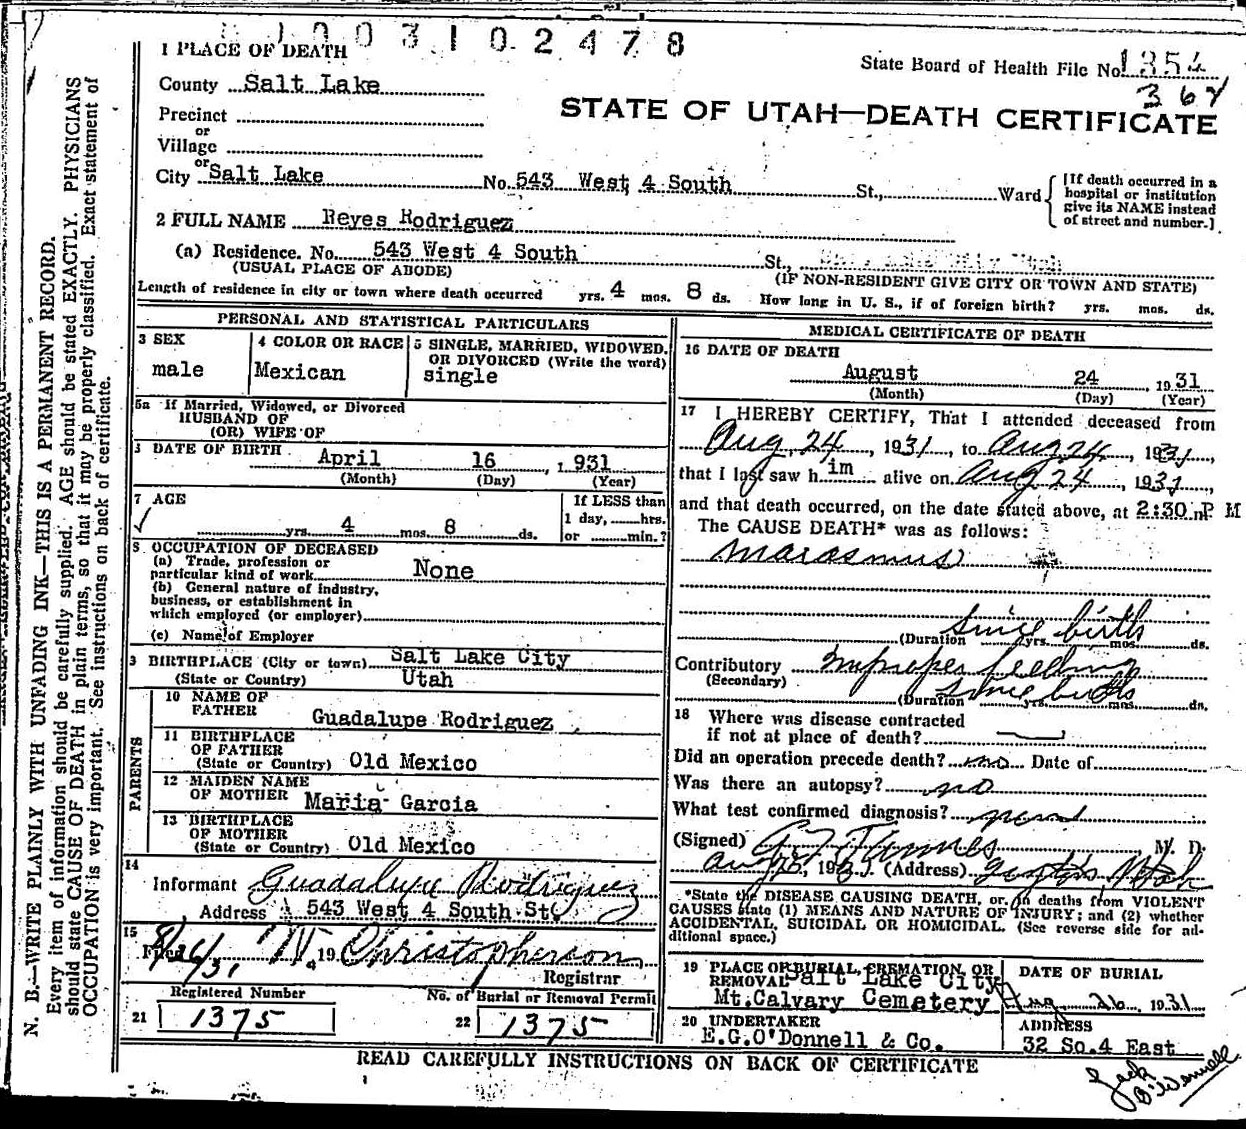 0 0 3 1 0 2 4 7 8
1 PLACE OF DEATH
State Board of Health File No. 1354
County Salt Lake
STATE OF UTAH—DEATH CERTIFICATE
Precinct
or
Village
or
City Salt Lake No. 543 West 4 South St., Ward
[If death occurred in a
hospital or institution
give its NAME instead
of street and number.]
2 FULL NAME Reyes Rodriguez
(a) Residence. No. 543 West 4 South St.,
(USUAL PLACE OF ABODE) (IF NON-RESIDENT GIVE CITY OR TOWN AND STATE)
Length of residence in city or town where death occurred yrs. 4 mos. 8 ds. How long in U. S., if of foreign birth? yrs. mos. ds.
PERSONAL AND STATISTICAL PARTICULARS
3 SEX
male
4 COLOR OR RACE
Mexican
5 SINGLE, MARRIED, WIDOWED,
OR DIVORCED (Write the word)
single
5a If Married, Widowed, or Divorced
HUSBAND OF
(OR) WIFE OF
DATE OF BIRTH April 16, 1931
(Month) (Day) (Year)
7 AGE
yrs. 4 mos. 8 ds.
If LESS than
1 day, hrs.
or min.?
8 OCCUPATION OF DECEASED
(a) Trade, profession or
particular kind of work None
(b) General nature of industry,
business, or establishment in
which employed (or employer)
(c) Name of Employer
BIRTHPLACE (City or town) Salt Lake City
(State or Country) Utah
PARENTS
10 NAME OF
FATHER Guadalupe Rodriguez
11 BIRTHPLACE
OF FATHER
(State or Country) Old Mexico
12 MAIDEN NAME
OF MOTHER Maria Garcia
13 BIRTHPLACE
OF MOTHER
(State or Country) Old Mexico
14
Informant Guadalupe Rodriguez
Address 543 West 4 South St.
15
Filed 8/26/31 19 Christopherson
Registrar
Registered Number
21 1375
No. of Burial or Removal Permit
22 1375
MEDICAL CERTIFICATE OF DEATH
16 DATE OF DEATH
August 24, 1931
(Month) (Day) (Year)
17 I HEREBY CERTIFY, That I attended deceased from
Aug 24, 1931, to Aug 24, 1931,
that I last saw him alive on Aug 24, 1931,
and that death occurred, on the date stated above, at 2:30 m P M
The CAUSE DEATH* was as follows:
marasmus
(Duration since birth yrs. mos. ds.
Contributory Improper feeding
(Secondary)
(Duration since birth yrs. mos. ds.
18 Where was disease contracted
if not at place of death?
Did an operation precede death? no Date of
Was there an autopsy? no
What test confirmed diagnosis?
(Signed) M. D.
(Address) Utah
*State the DISEASE CAUSING DEATH, or, in deaths from VIOLENT
CAUSES state (1) MEANS AND NATURE OF INJURY; and (2) whether
ACCIDENTAL, SUICIDAL OR HOMICIDAL. (See reverse side for ad-
ditional space.)
19 PLACE OF BURIAL, CREMATION, OR
REMOVAL Salt Lake City
Mt.Calvary Cemetery
DATE OF BURIAL
Aug 26, 1931
20 UNDERTAKER
E.G.O'Donnell & Co.
ADDRESS
32 So.4 East
Jack
O'Donnell
READ CAREFULLY INSTRUCTIONS ON BACK OF CERTIFICATE
N. B.—WRITE PLAINLY WITH UNFADING INK—THIS IS A PERMANENT RECORD.
Every item of information should be carefully supplied. AGE should be stated EXACTLY. PHYSICIANS
should state CAUSE OF DEATH in plain terms, so that it may be properly classified. Exact statement of
OCCUPATION is very important. See instructions on back of certificate.